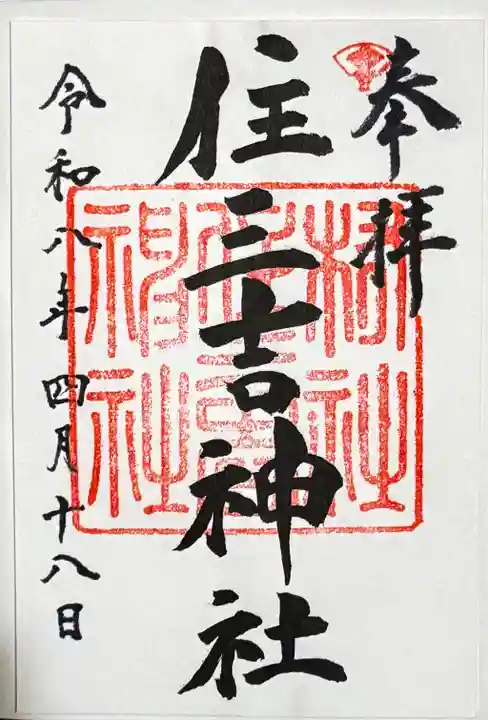 奉拝
住三吉神社
令和八年四月十八日